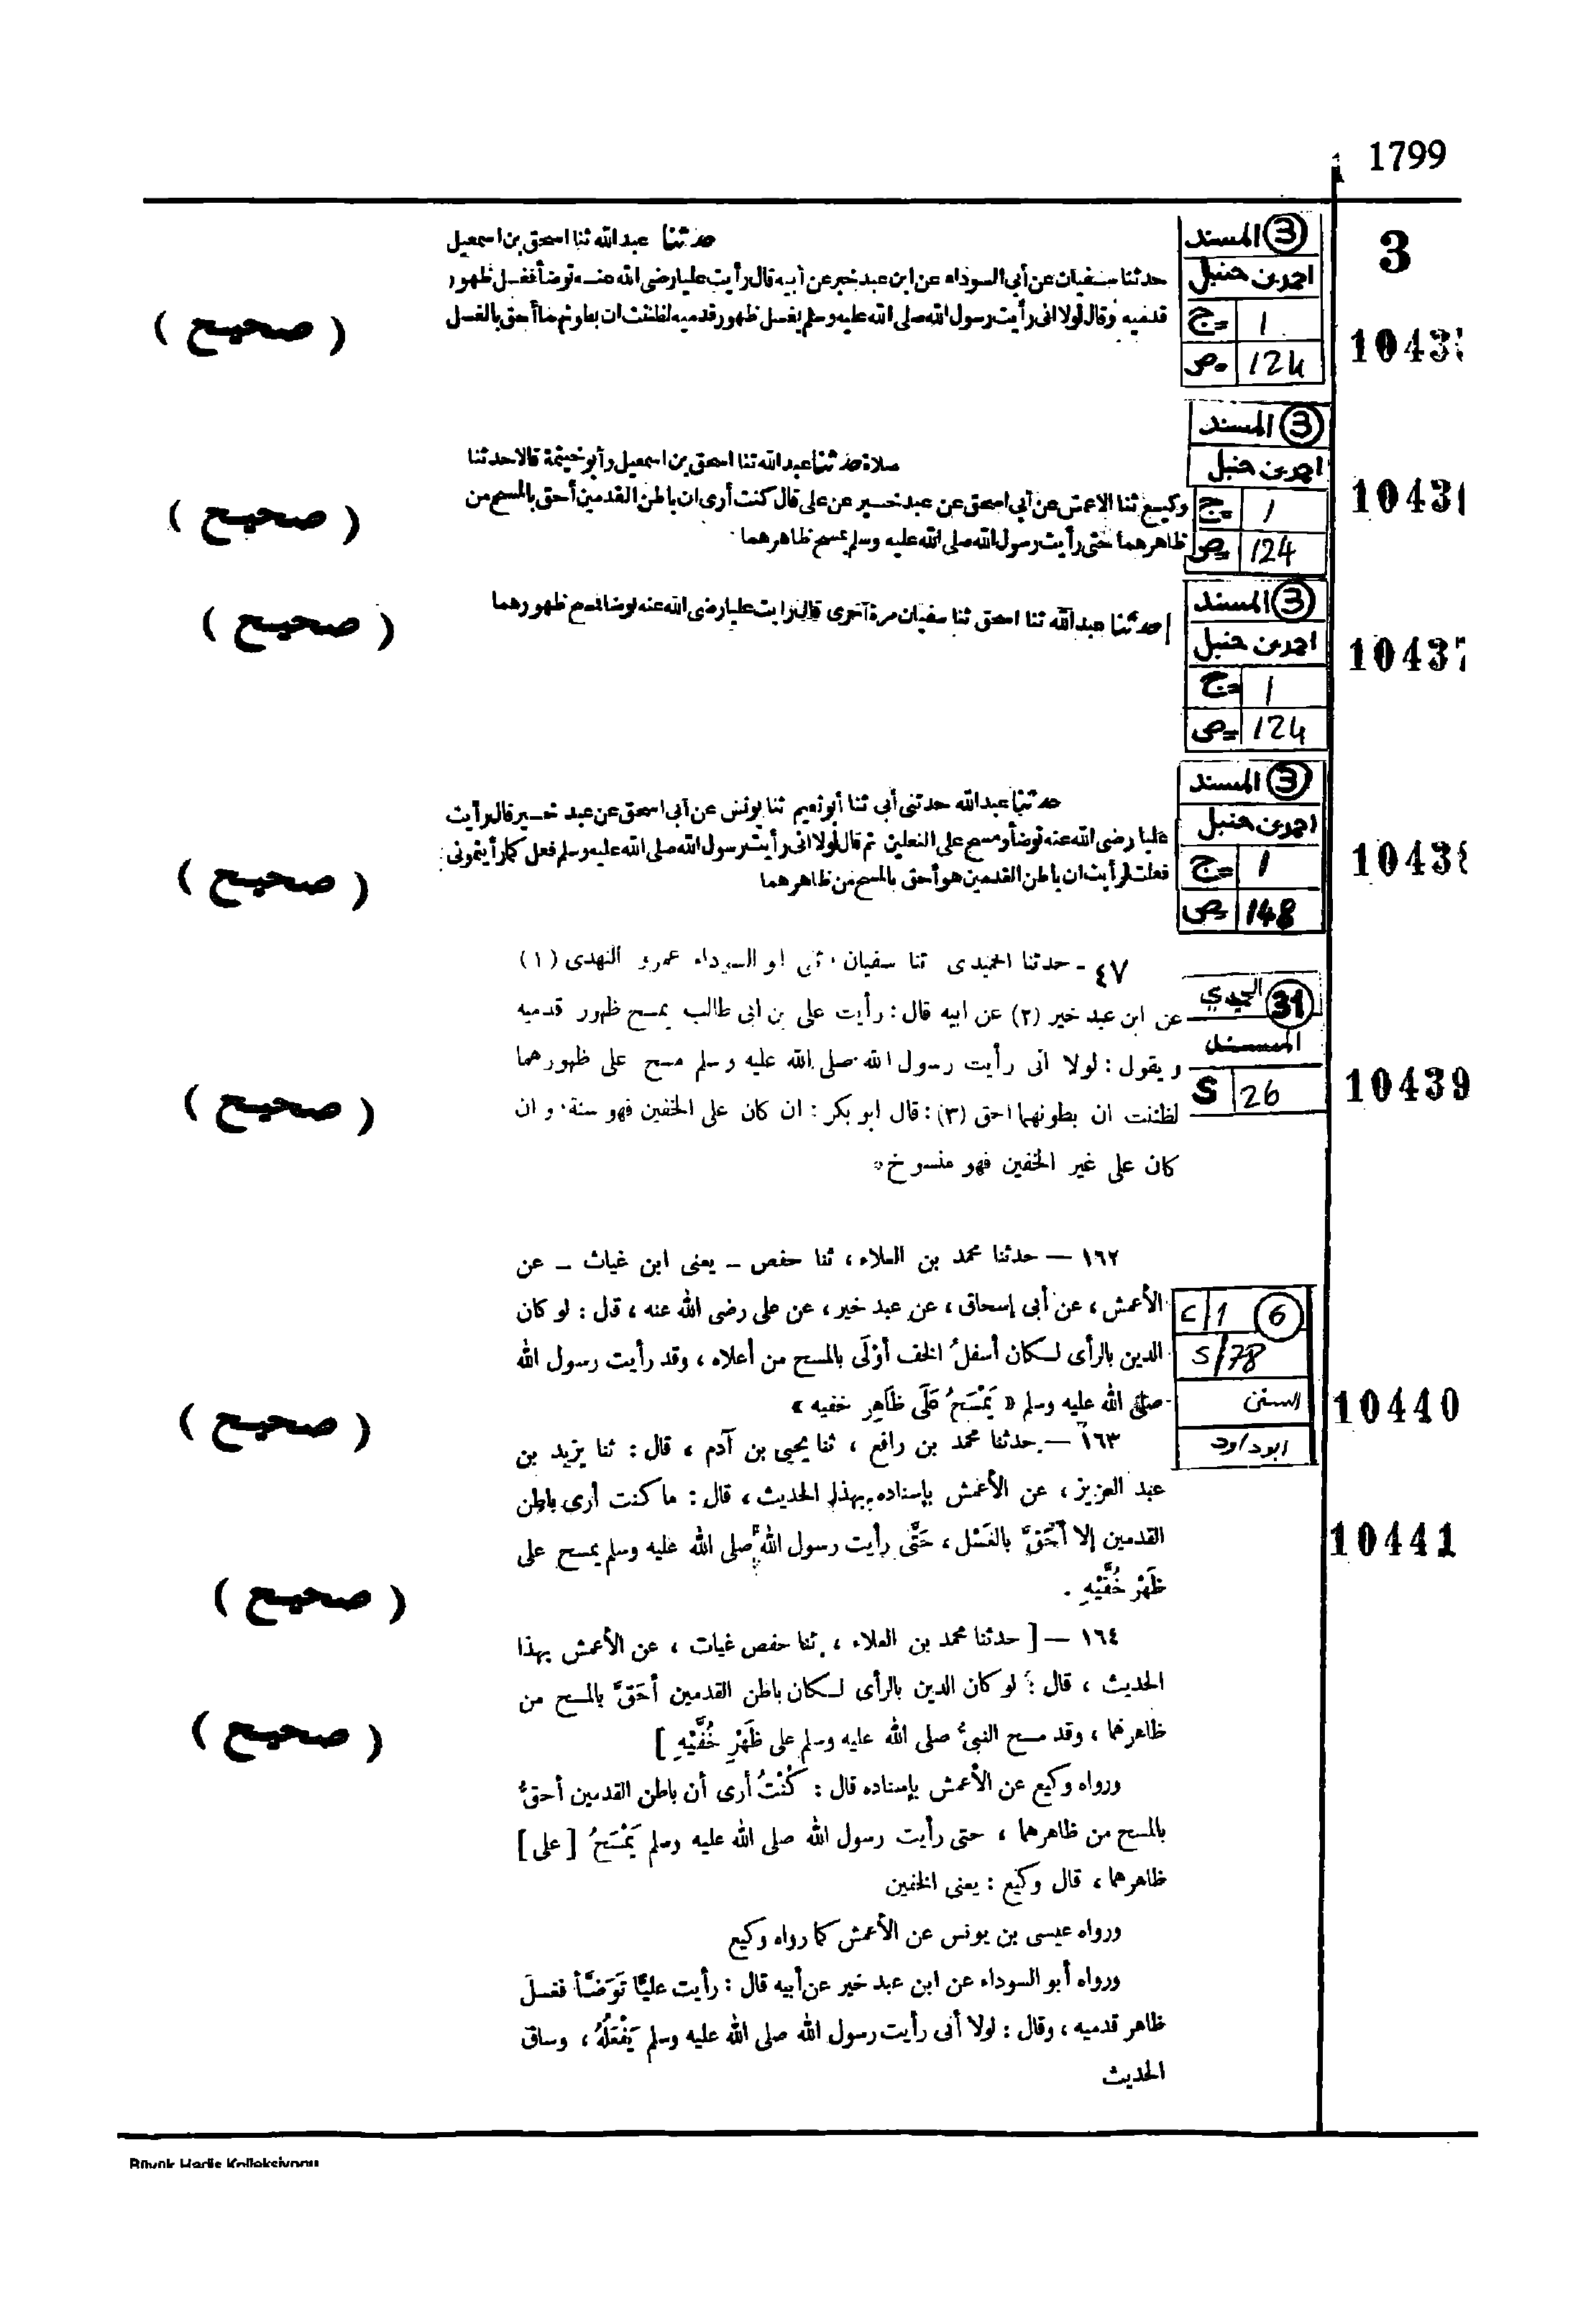 1799
3
حدثنا عبد الله ثنا اسحق بن اسمعيل
حدثنا سفيان عن أبي السوداء عن ابن عبد خير عن أبيه قال رأيت عليا رضى الله عنه توضأ فغسل ظهور
قدميه وقال لولا انى رأيت رسول الله صلى الله عليه وسلم يغسل ظهور قدميه لظننت ان بطونهما أحق بالغسل
( صحيح )
3 المسند
احمد بن حنبل
ج= 1
ص= 124
1043
حدثنا عبد الله ثنا اسحق بن اسمعيل وأبو خيثمة قالا حدثنا
وكيع ثنا الاعمش عن أبي اسحق عن عبد خير عن على قال كنت أرى ان باطن القدمين أحق بالمسح من
ظاهرهما حتى رأيت رسول الله صلى الله عليه وسلم يمسح ظاهرهما
( صحيح )
3 المسند
احمد بن حنبل
ج= 1
ص= 124
1043
حدثنا عبد الله ثنا اسحق ثنا سفيان مرة أخرى قال رأيت عليا رضى الله عنه توضأ فمسح ظهورهما
( صحيح )
3 المسند
احمد بن حنبل
ج= 1
ص= 124
10437
حدثنا عبد الله حدثنى أبي ثنا أبو نعيم ثنا يونس عن أبى اسحق عن عبد خير قال رأيت
عليا رضى الله عنه توضأ ومسح على النعلين ثم قال لولا انى رأيت رسول الله صلى الله عليه وسلم فعل كما رأيتمونى
فعلت لرأيت ان باطن القدمين هو أحق بالمسح من ظاهرهما
( صحيح )
3 المسند
احمد بن حنبل
ج= 1
ص= 148
1043
٤٧ - حدثنا الحميدى ثنا سفيان ثنى ابو السوداء عمرو النهدى (١)
عن ابن عبد خير (٢) عن ابيه قال : رأيت على بن ابى طالب يمسح ظهور قدميه
و يقول : لولا انى رأيت رسول الله صلى الله عليه و سلم مسح على ظهورهما
لظننت ان بطونهما احق (٣) : قال ابو بكر : ان كان على الخفين فهو سنة و ان
كان على غير الخفين فهو منسوخ
( صحيح )
31 الحميدي
المسند
S 26
10439
١٦٢ — حدثنا محمد بن العلاء ، ثنا حفص – يعنى ابن غياث – عن
الأعمش ، عن أبى إسحاق ، عن عبد خير ، عن على رضى الله عنه ، قال : لو كان
الدين بالرأى لـكان أسفلُ الخف أوْلَى بالمسح من أعلاه ، وقد رأيت رسول الله
صلى الله عليه وسلم « يَمْسَحُ عَلَى ظَاهِرِ خفيه »
( صحيح )
C/1 6
S/78
السنن
ابو داود
10440
١٦٣ — حدثنا محمد بن رافع ، ثنا يحيى بن آدم ، قال : ثنا يزيد بن
عبد العزيز ، عن الأعمش بإسناده بهذا الحديث ، قال : ما كنت أرى باطن
القدمين إلا أحَقَّ بالغَسْل ، حَتَّى رأيت رسول الله صلى الله عليه وسلم يمسح على
ظَهْرِ خُفَّيْهِ .
( صحيح )
10441
١٦٤ — [ حدثنا محمد بن العلاء ، ثنا حفص غياث ، عن الأعمش بهذا
الحديث ، قال : لو كان الدين بالرأى لـكان باطن القدمين أحَقَّ بالمسح من
ظاهرهما ، وقد مسح النبىُّ صلى الله عليه وسلم على ظَهْرِ خُفَّيْهِ ]
( صحيح )
ورواه وكيع عن الأعمش بإسناده قال : كُنْتُ أرى أن باطن القدمين أحقُّ
بالمسح من ظاهرهما ، حتى رأيت رسول الله صلى الله عليه وسلم يَمْسَحُ [ على ]
ظاهرهما ، قال وكيع : يعنى الخفين
ورواه عيسى بن يونس عن الأعمش كما رواه وكيع
ورواه أبو السوداء عن ابن عبد خير عن أبيه قال : رأيت عليًّا تَوَضَّأ فغسلَ
ظاهر قدميه ، وقال : لولا أنى رأيت رسول الله صلى الله عليه وسلم يَفْعَلُهُ ، وساق
الحديث
Büyük Hadis Kolleksiyonu